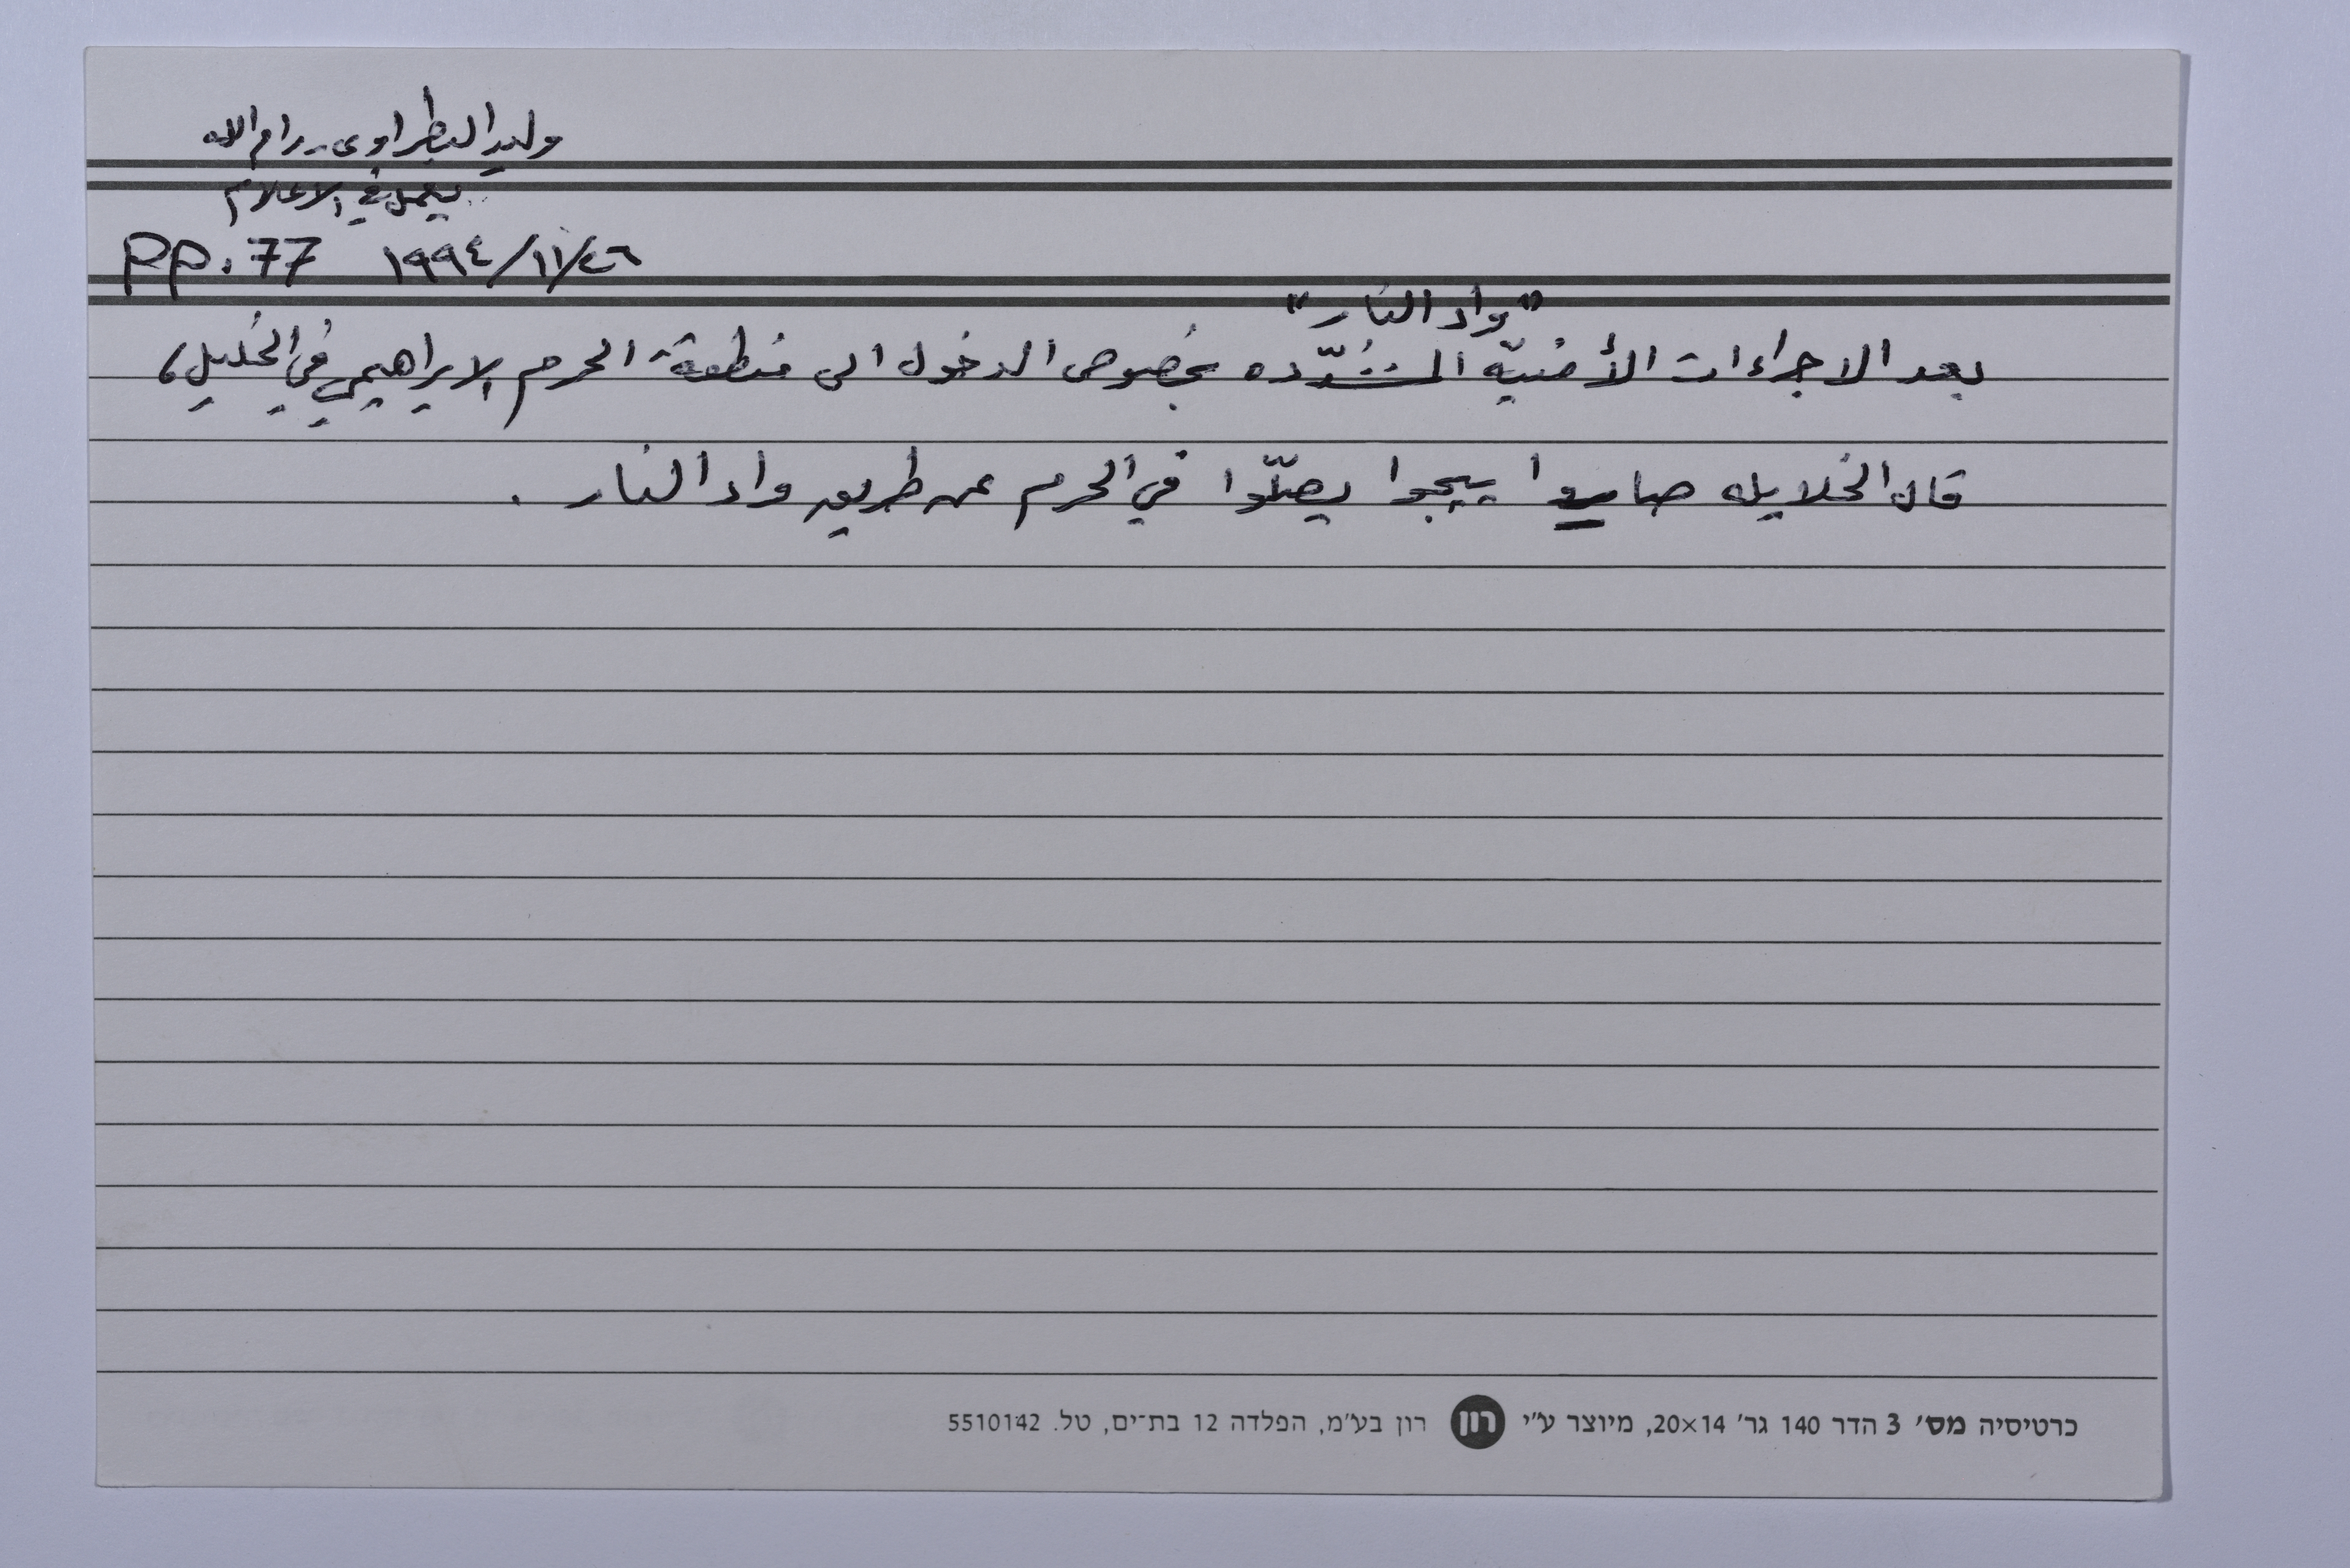 وليد البطراوي - رام الله
يعمل في الاعلام
PP. 77 ١٩٩٤/١١/٢٦
"واد النار"
بعد الاجراءات الأمنيّه المشدّده بخصوص الدخول الى منطقة الحرم الابراهيمي في الخليل،
قال الخلايله صاروا ييجوا يصلّوا في الحرم عن طريق واد النار.
כרטיסיה מס׳ 3 הדר 140 גר׳ 20×14, מיוצר ע״י רון רון בע״מ, הפלדה 12 בת־ים, טל. 5510142